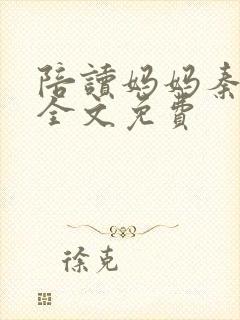 陪讀妈妈秦
全文免費
徐克